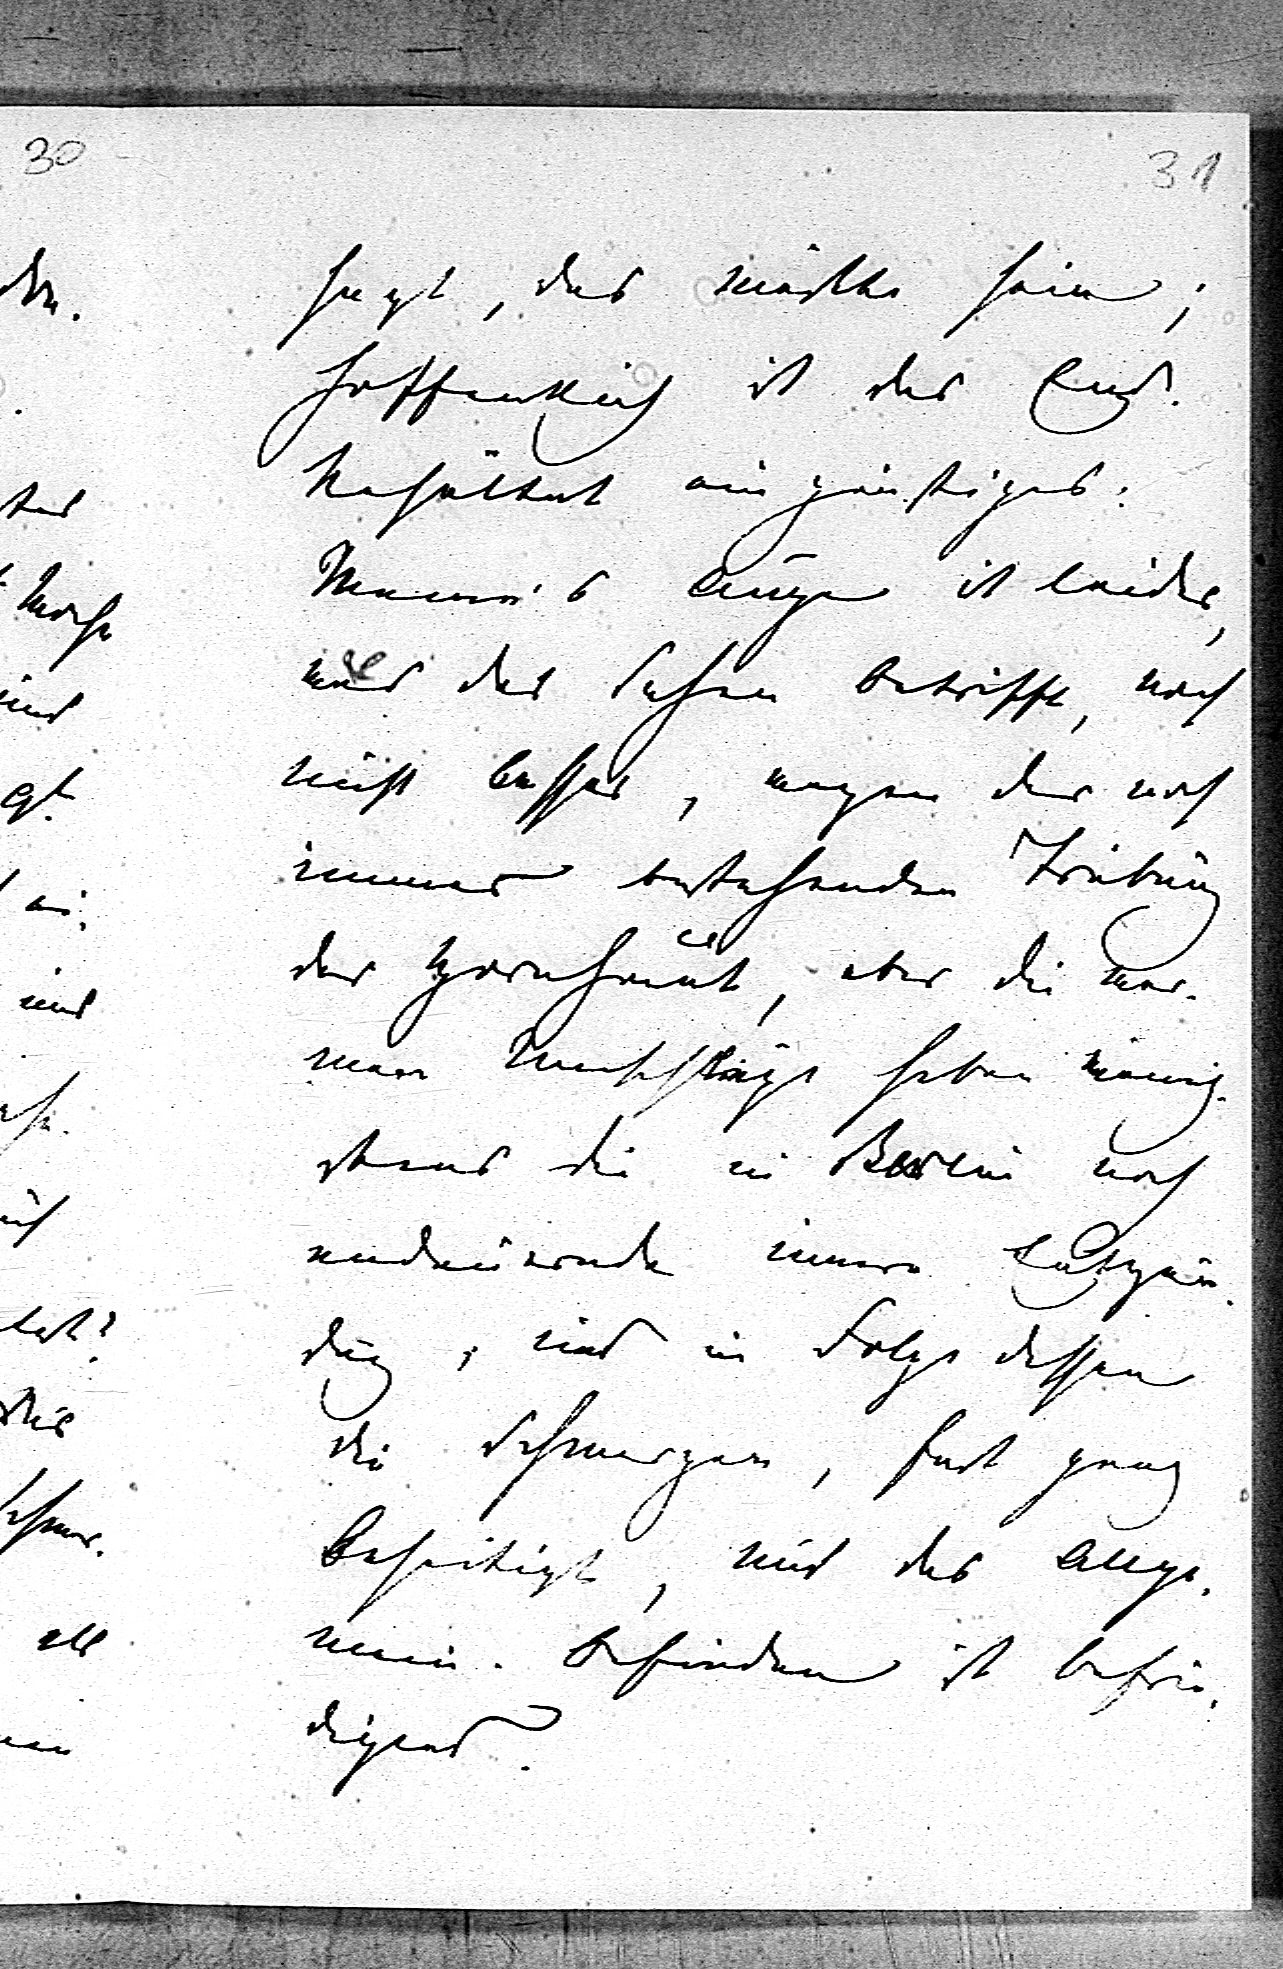 30
31
sagt, das müsste sein;
hoffentlich ist das End-
Resultat ein günstiges.
Mama's Auge ist leider,
was das Sehen betrifft, noch
nicht besser, wegen der noch
immer bestehenden Trübung
der Hornhaut, aber die war-
men Umschläge haben wenig-
stens die in Berlin noch
andauernde innere Entzün-
dung, und in Folge dessen
die Schmerzen, fast ganz
beseitigt, und das Allge-
mein-Befinden ist befrie-
digend.